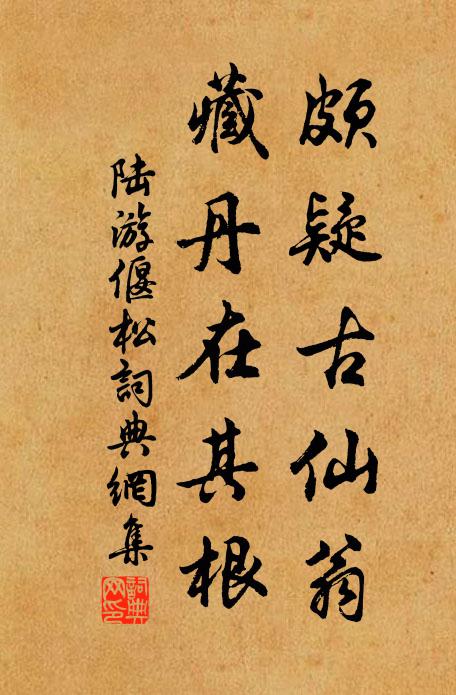 頗疑古仙翁
藏丹在其根
陸游偃松詞典網集
詞典网印